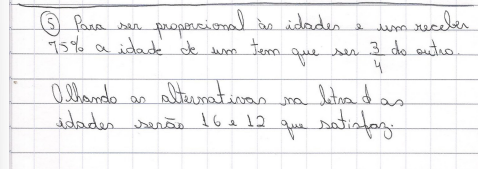 ⑤ Para ser proporcional às idades e um receber
75% a idade de um tem que ser 3/4 do outro.
Olhando as alternativas na letra d as
idades serão 16 e 12 que satisfaz.